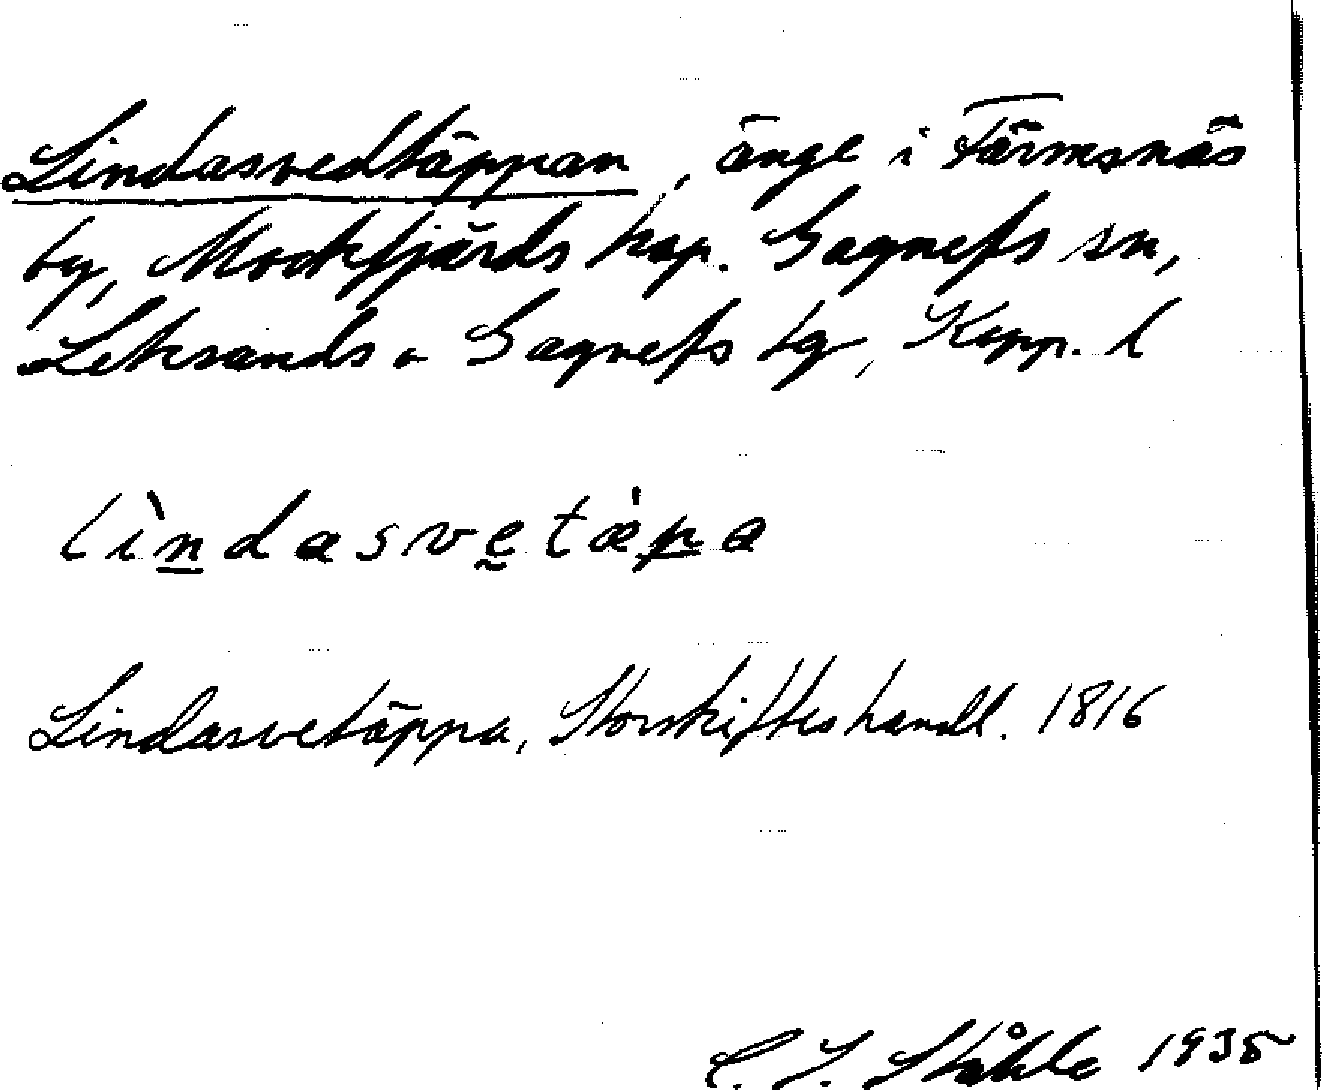 Lindasvedtäppan, änge i Färmsnäs
by, Mockfjärds kap. Gagnefs sn,
Leksands o Gagnefs tg, Kopp. l
lìndasvetæ̀pa
Lindasvetäppa, Storskifteshandl. 1816
C. I. Ståhle 1935